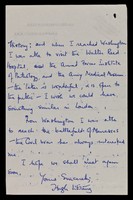 History; and when I reached Washington
I was able to visit the Walter Reed
Hospital, and the Armed Forces Institute
of Pathology, and the Army Medical Museum
- the latter is wonderful, & is open to
the public: I wish we could have
something similar in London.
From Washington I was able
to reach the battlefield of Manassas
- the Civil War has always interested
me.
I hope we shall meet again
soon.
Yours Sincerely,
Hugh